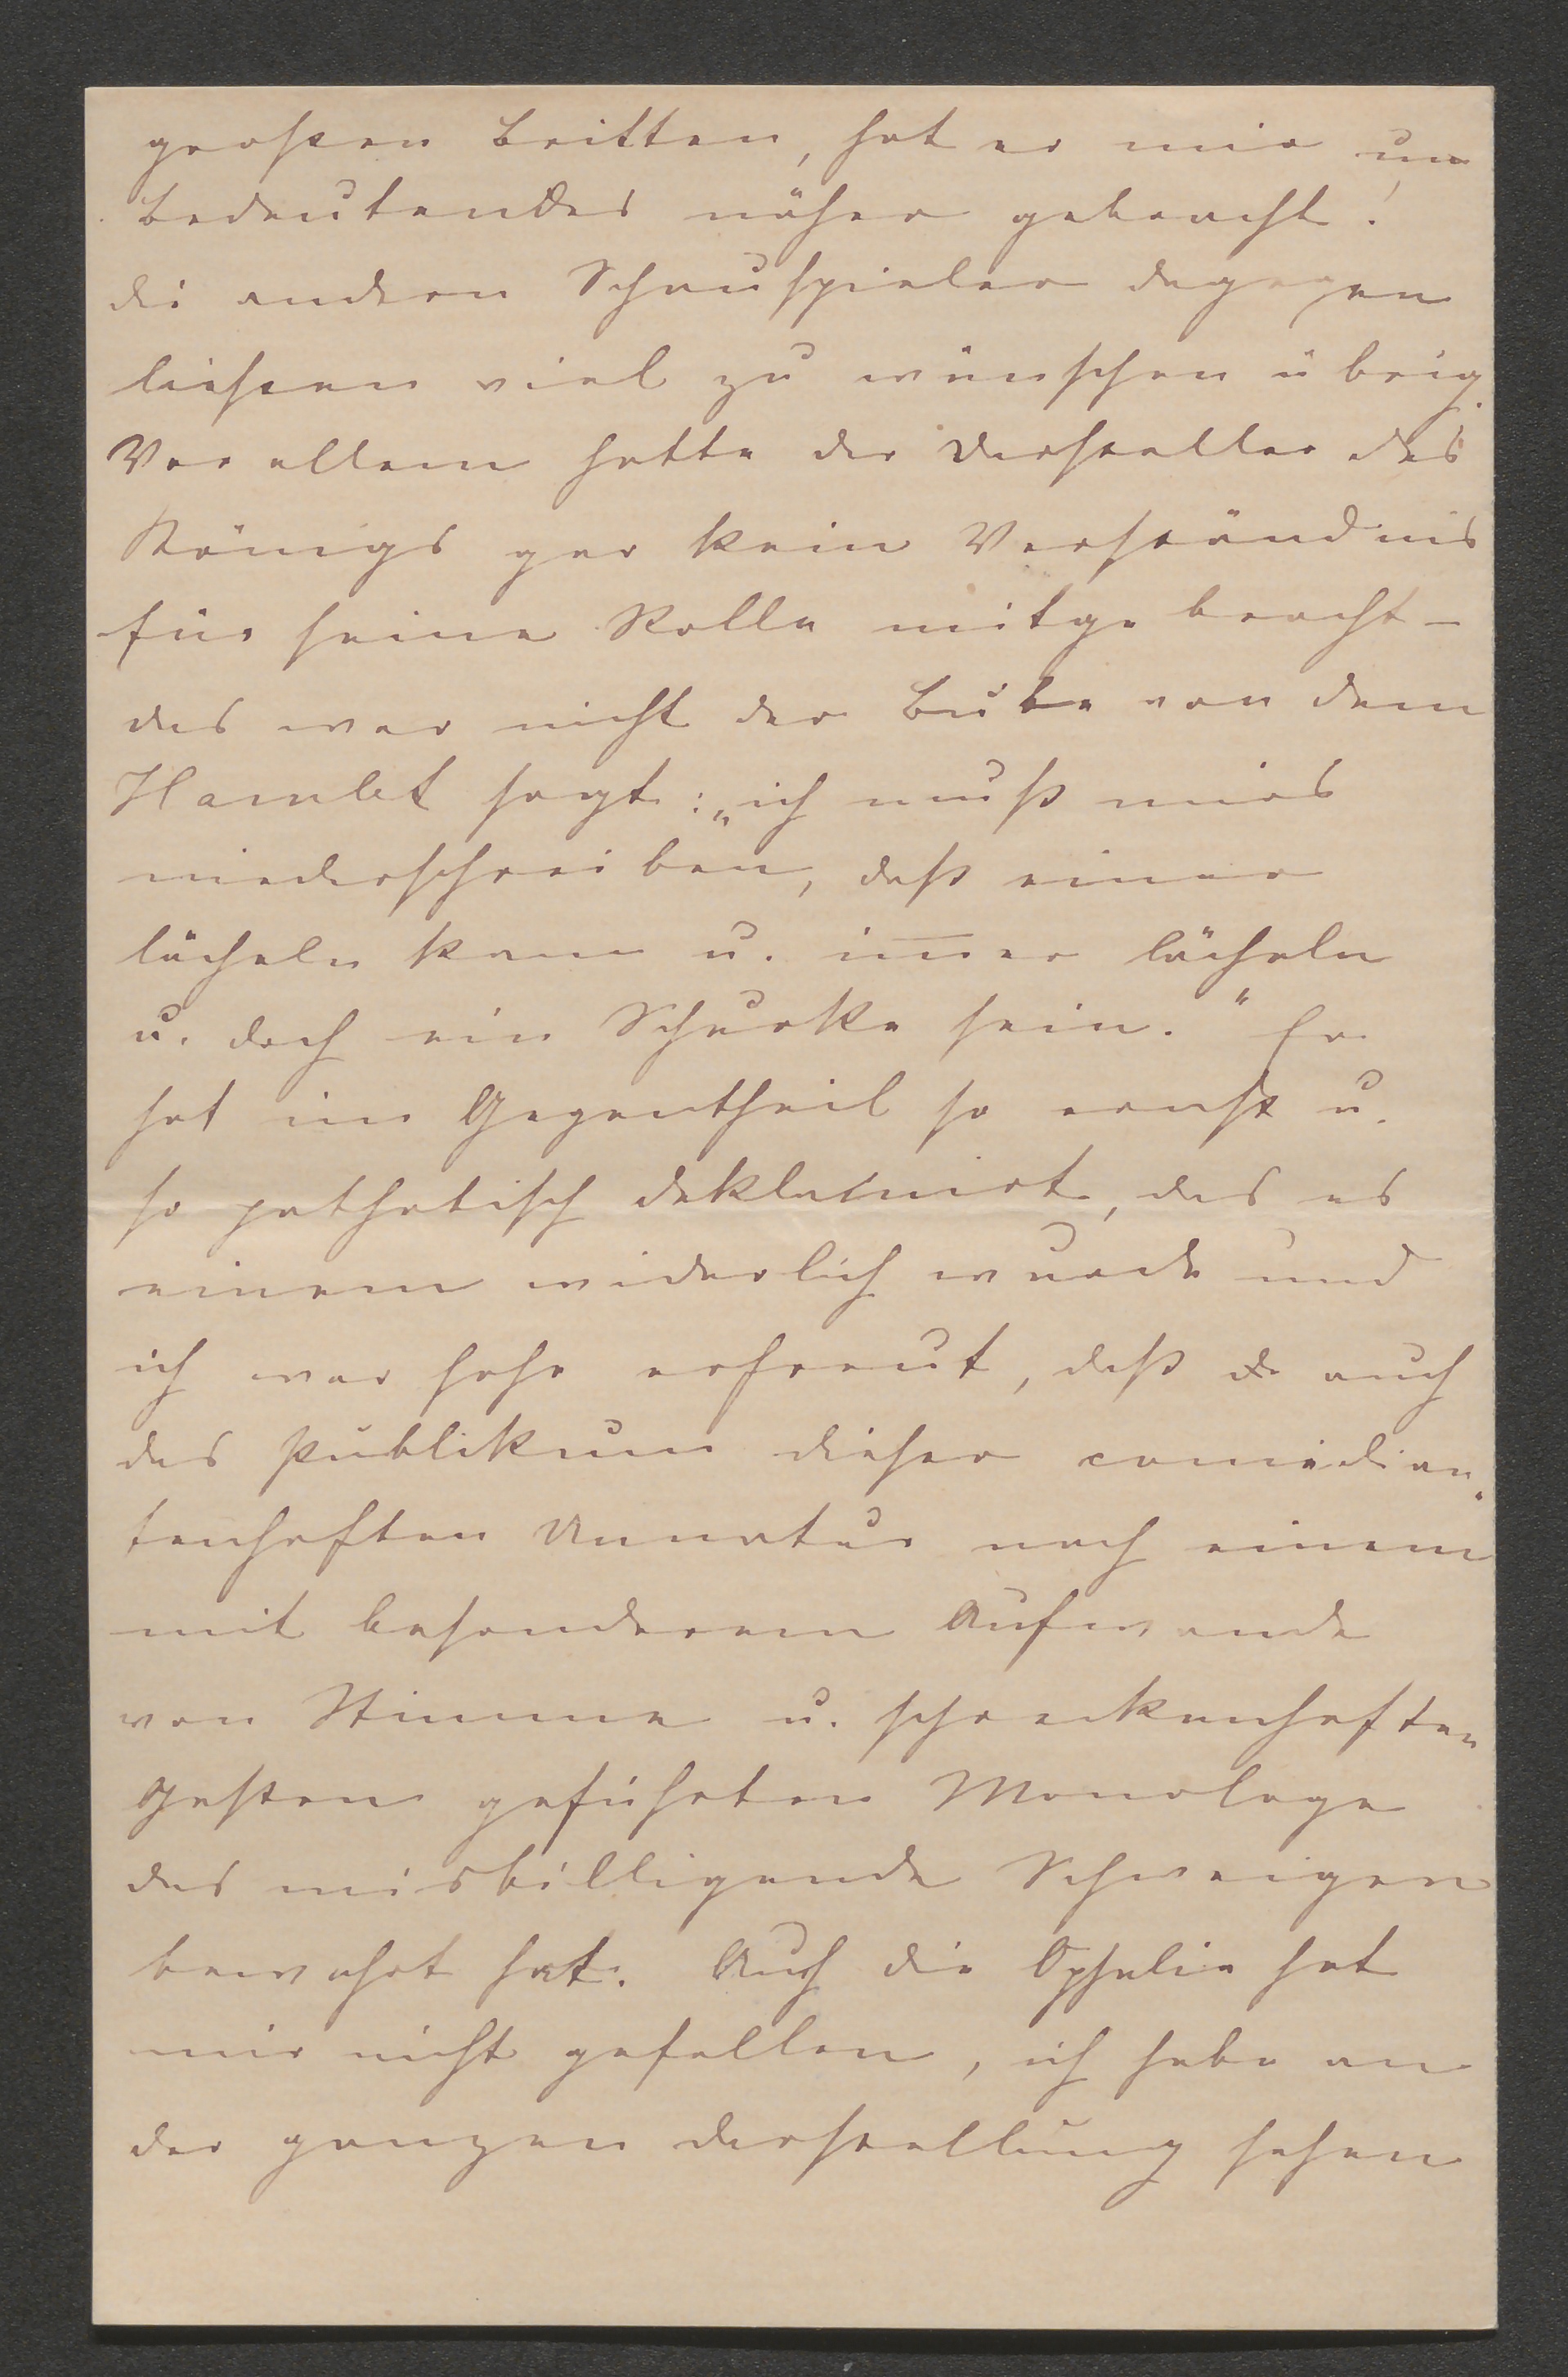 großen Britten, hat er mir um
Bedeutendes näher gebracht!
die andern Schauspieler dagegen
ließen viel zu wünschen übrig.
Vor allem hatte der Darsteller des
Königs gar kein Verständnis
für seine Rolle mitgebracht –
das war nicht der Bube von dem
Hamlet sagt: „ich muß mirs
niederschreiben, daß einer
lächeln kann u. im̅er lächeln
u. doch ein Schurke sein." Er
hat im Gegentheil so ernst u.
so pathetisch deklamirt, das es
einem widerlich wurde und
ich war sehr erfreut, daß auch
das Publikum dieser comedian-
tenhaften Unnatur nach einem
mit besonderem Aufwande
von Stimme u. schreckenhaften
Gesten geführten Monologe
das misbilligende Schweigen
bewahrt hat. Auch die Ophelia hat
mir nicht gefallen, ich habe an
der ganzen Darstellung sehen